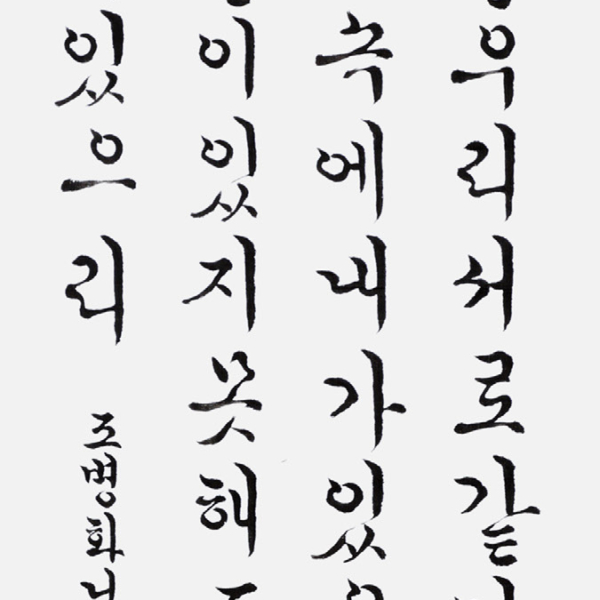 우리서로같
속에내가있
이있지못해
있으리
조병화